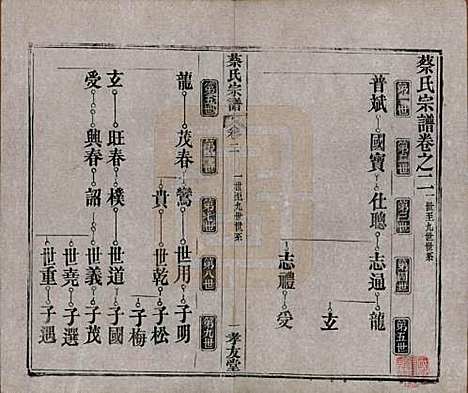 蔡氏宗譜卷之二 一世至九世世系
第一世 第二世 第三世 第四世 第五世
普斌 國寶 仕聰 志通 龍
玄
志禮 愛
蔡氏宗譜 卷二 一世至九世世系 一 孝友堂
第五世 第六世 第七世 第八世 第九世
龍 茂春 鸞 世用 子明
貴 世乾 子松
子梅
玄 旺春 樸 世道 子國
愛 興春 詔 世義 子茂
世堯 子選
世重 子遇